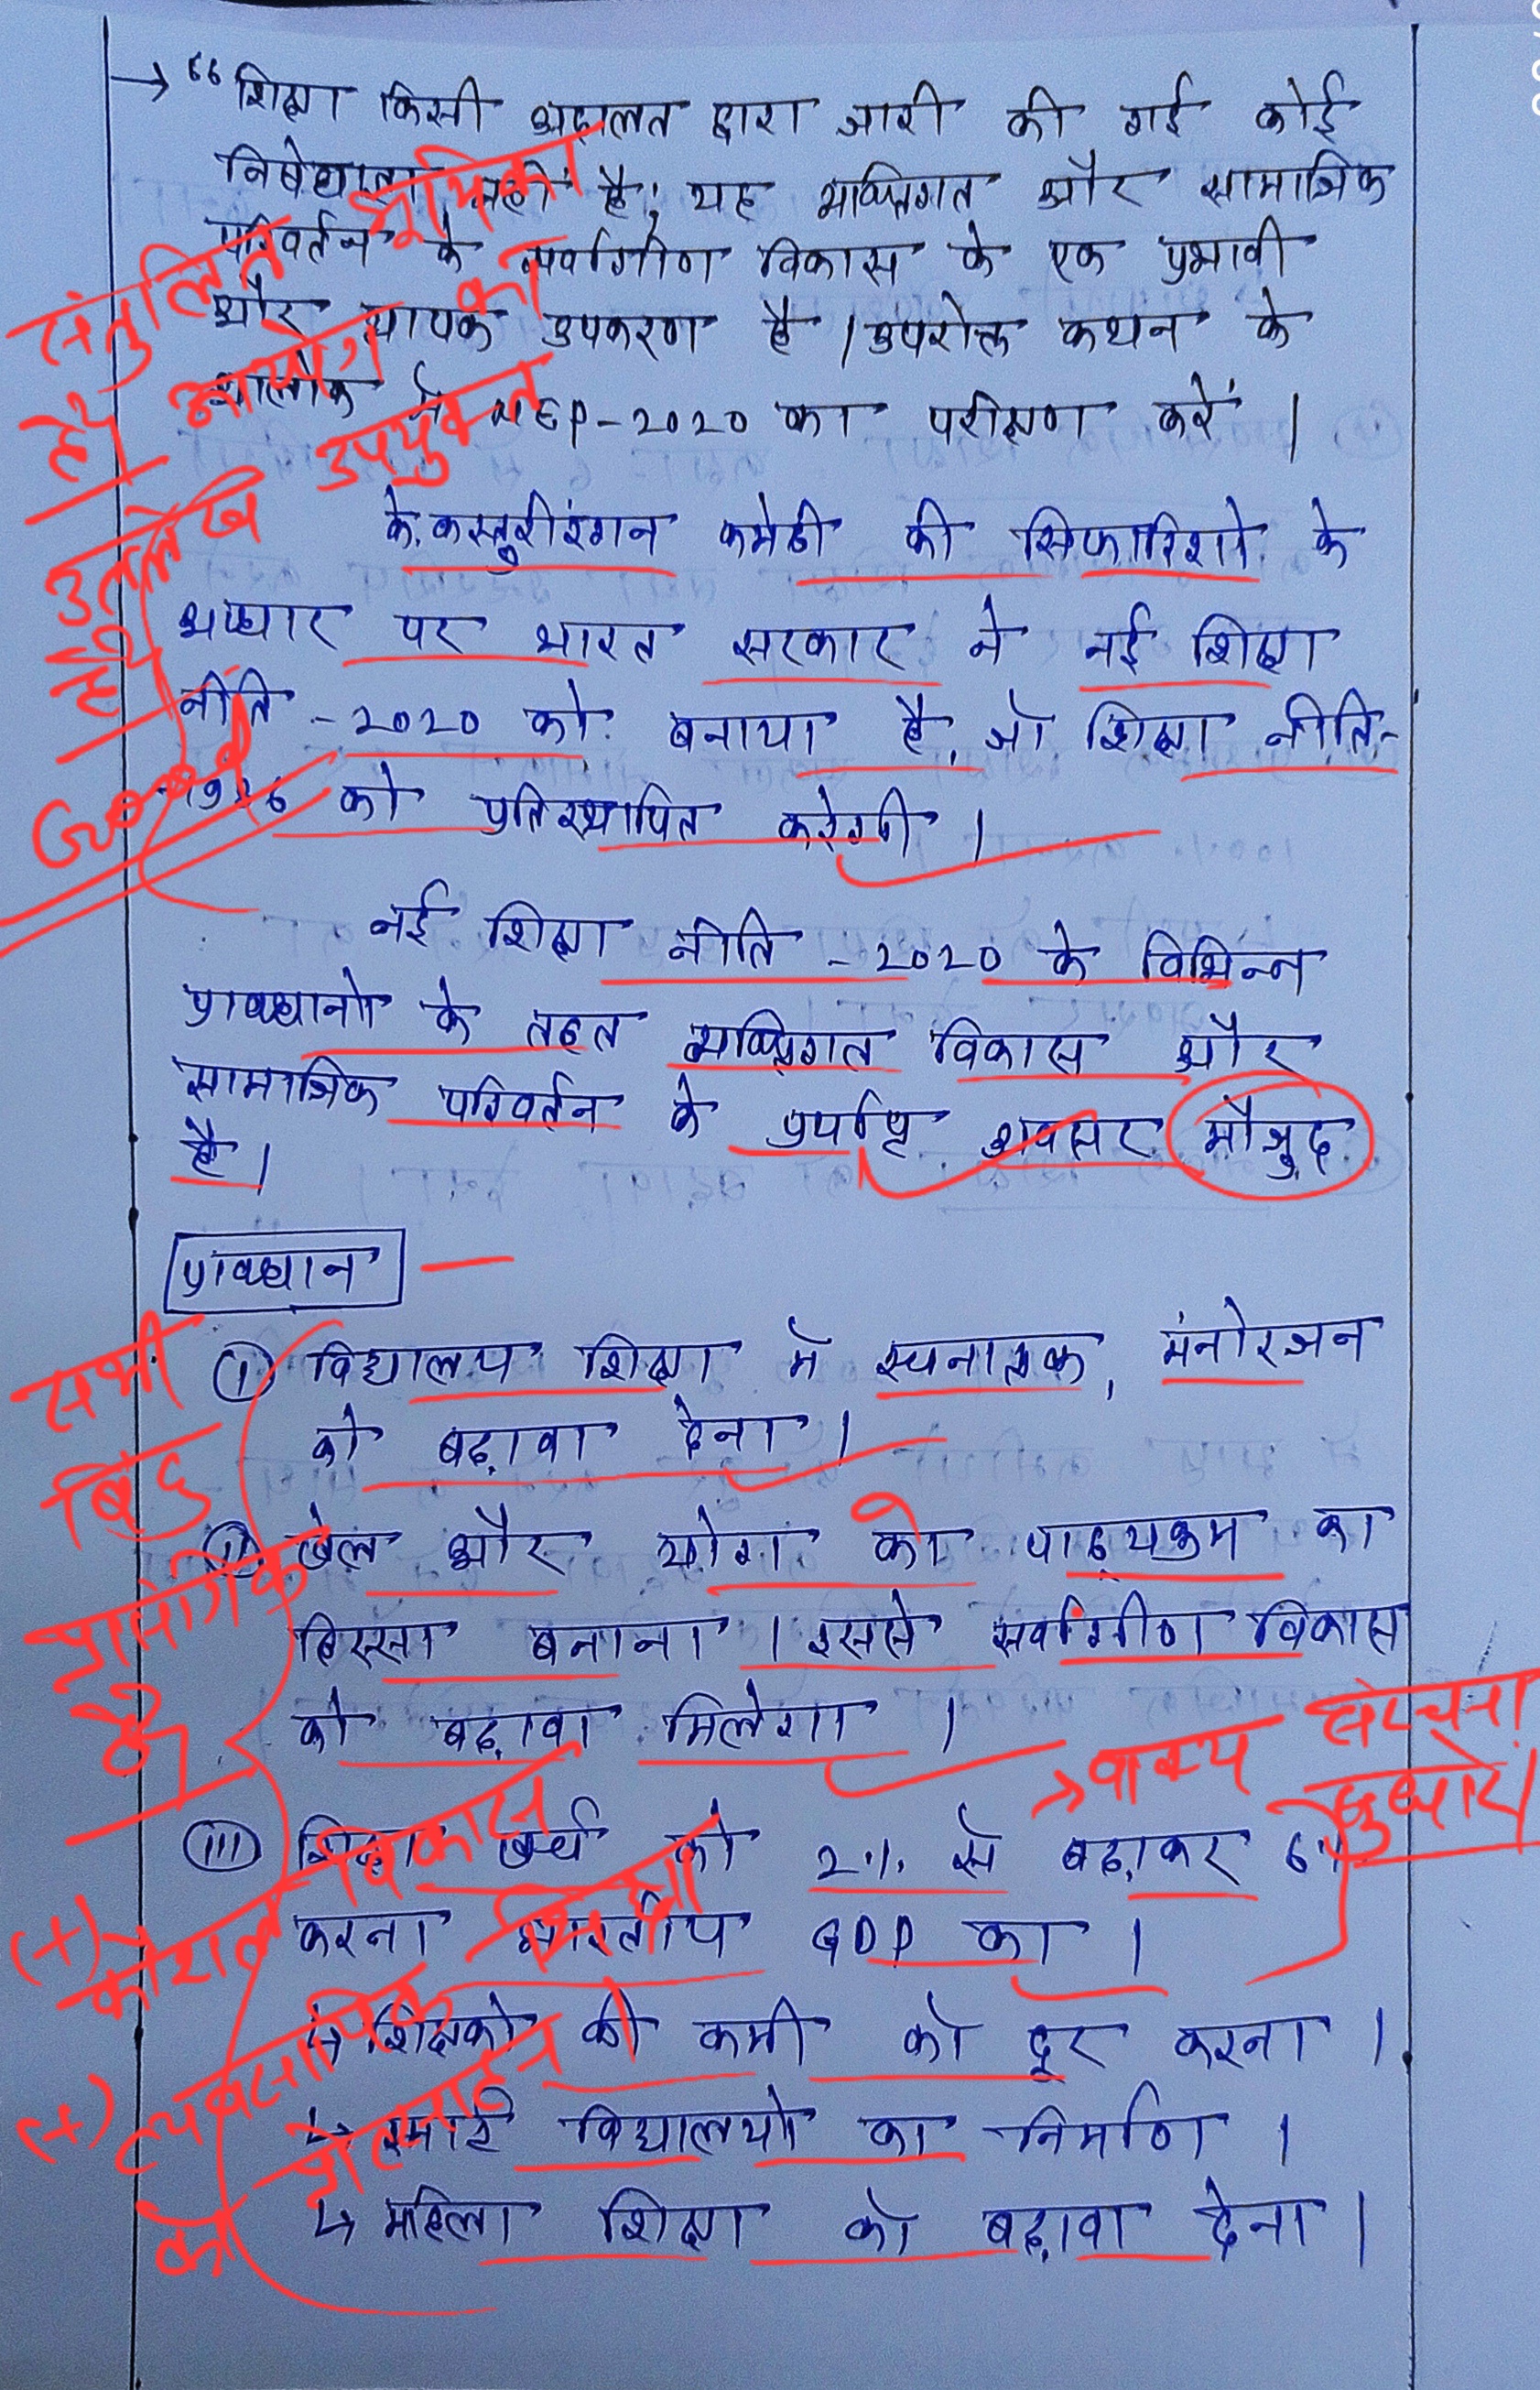 → “शिक्षा किसी अदालत द्वारा जारी की गई कोई
निषेधाज्ञा नहीं है; यह व्यक्तिगत और सामाजिक
परिवर्तन के सर्वांगीण विकास के एक प्रभावी
और व्यापक उपकरण है। उपरोक्त कथन के
आलोक में NEP-2020 का परीक्षण करें।
संतुलित भूमिका
है। आयोग का
उल्लेख उपयुक्त
है।
Good
के. कस्तूरीरंगन कमेटी की सिफारिशो के
आधार पर भारत सरकार ने नई शिक्षा
नीति -2020 को बनाया है, जो शिक्षा नीति-
1986 को प्रतिस्थापित करेगी।
नई शिक्षा नीति -2020 के विभिन्न
प्रावधानो के तहत व्यक्तिगत विकास और
सामाजिक परिवर्तन के पर्याप्त अवसर मौजुद
है।
प्रावधान —
सभी
बिंदु
प्रासंगिक
है।
(i) विद्यालय शिक्षा मे रचनात्मक, मंनोरजन
को बढ़ावा देना।
(ii) खेल और योग को पाठ्यक्रम का
हिस्सा बनाना। इससे सर्वांगीण विकास
को बढ़ावा मिलेगा।
→ वाक्य संरचना
सुधारें।
(iii) शिक्षा खर्च को 2% से बढ़ाकर 6%
करना भारतीय GDP का।
↳ शिक्षको की कमी को दूर करना।
↳ स्मार्ट विद्यालयो का निर्माण।
↳ महिला शिक्षा को बढ़ावा देना।
(+) कौशल विकास
(+) व्यवसायिक शिक्षा
को प्रोत्साहन